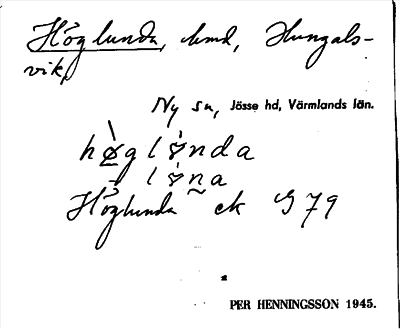 Höglunda, hmd, Hungals-
vik,
Ny sn, Jösse hd, Värmlands län.
Höglunda ek G 79
PER HENNINGSSON 1945.